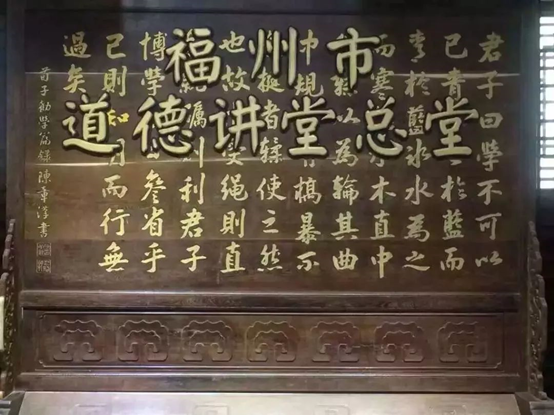 福州市
道德讲堂总堂
君子曰學不可以
已青於藍而
青於藍冰水為之
而寒木直中
以為輪其曲
中規槁暴不
挺者輮使之然
也故受繩則直
礪則利君子
博學參省乎
已則知明而行無
過矣
荀子勸學篇錄陳章漢書